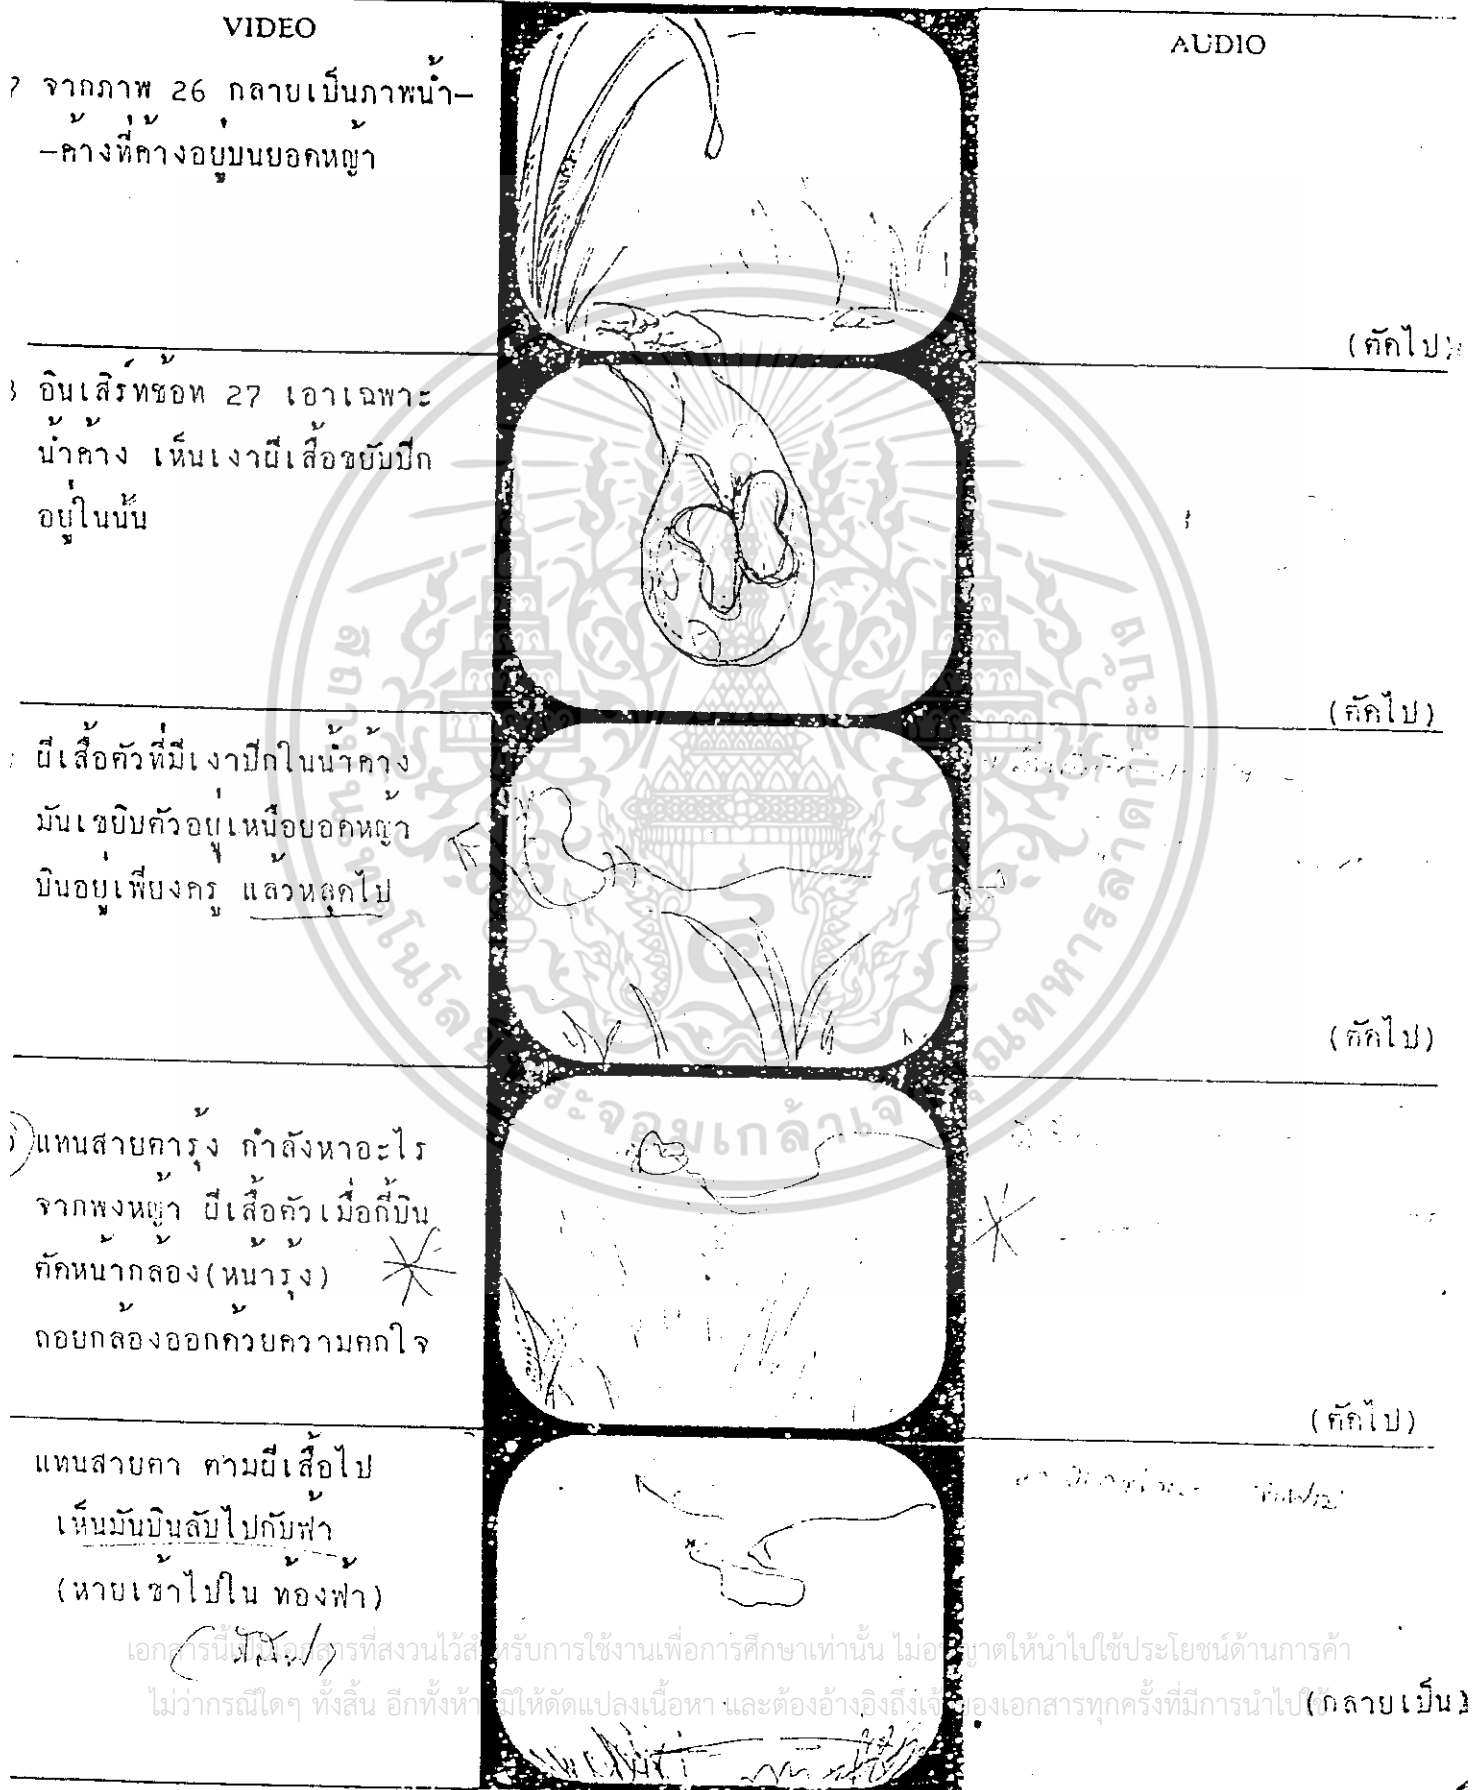 VIDEO
AUDIO
7 จากภาพ 26 กลายเป็นภาพน้ำ-
-ค้างที่ค้างอยู่บนยอดหญ้า
(ตัดไป)
8 อินเสิร์ทช็อท 27 เอาเฉพาะ
น้ำค้าง เห็นเงาผีเสื้อขยับปีก
อยู่ในนั้น
(ตัดไป)
ผีเสื้อตัวที่มีเงาปีกในน้ำค้าง
มันเขยิบตัวอยู่เหนือยอดหญ้า
บินอยู่เพียงครู่ แล้วหลุดไป
(ตัดไป)
แทนสายตารุ้ง กำลังหาอะไร
จากพงหญ้า ผีเสื้อตัวเมื่อกี้บิน
ตัดหน้ากล้อง(หน้ารุ้ง)
ถอยกล้องออกด้วยความตกใจ
(ตัดไป)
แทนสายตา ตามผีเสื้อไป
เห็นมันบินลับไปกับฟ้า
(หายเข้าไปใน ท้องฟ้า)
(กลายเป็น)
สถาบันเทคโนโลยีพระจอมเกล้าเจ้าคุณทหารลาดกระบัง
เอกสารนี้เป็นเอกสารที่สงวนไว้สำหรับการใช้งานเพื่อการศึกษาเท่านั้น ไม่อนุญาตให้นำไปใช้ประโยชน์ด้านการค้า
ไม่ว่ากรณีใดๆ ทั้งสิ้น อีกทั้งห้ามมิให้ดัดแปลงเนื้อหา และต้องอ้างอิงถึงเจ้าของเอกสารทุกครั้งที่มีการนำไปใช้